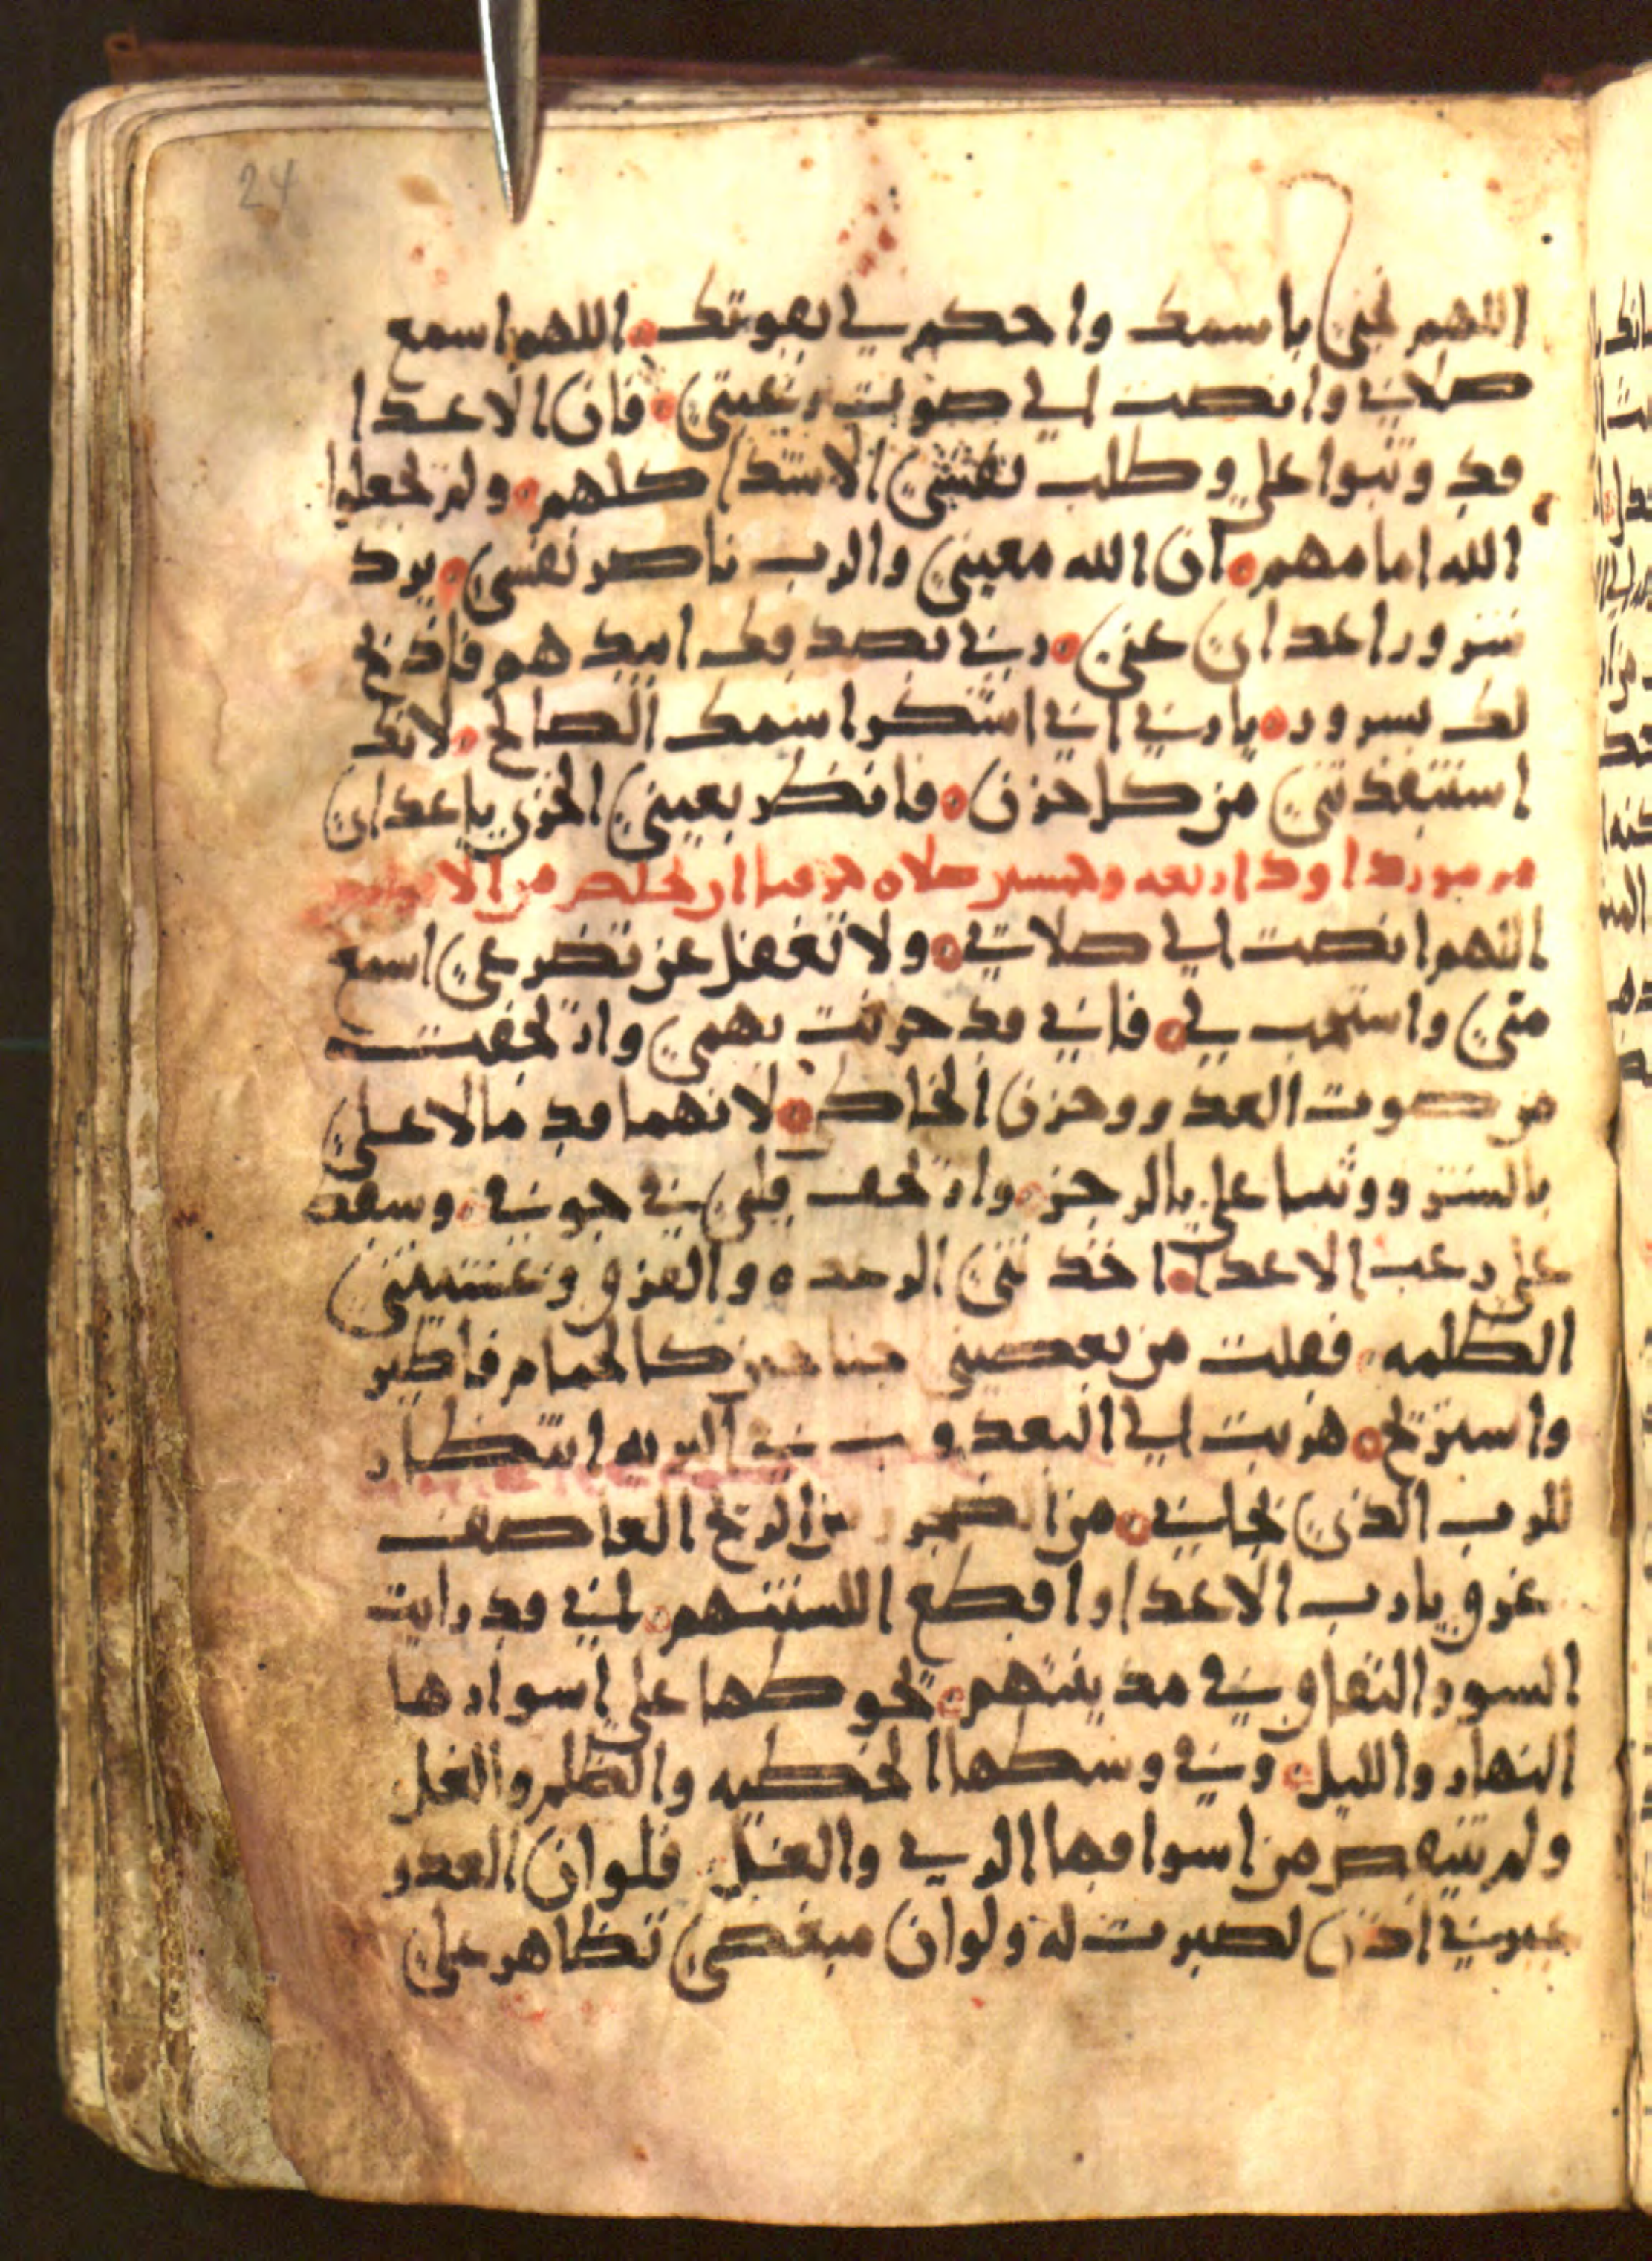 24
اللهم نجني باسمك واحكم لي بقوتك اللهم اسمع
صلاتي وانصت الي صوت رغبتي فان الاعدا
قد وثبوا علي وطلب نفسي الاشدا كلهم ولم يجعلوا
الله امامهم ان الله معيني والرب ناصر نفسي يرد
شرور اعداي عني ربي بصدقك ابيدهم فاذبح
لك بسرور يا ربي اني اشكر اسمك الصالح لانك
استنقذتني من كل حزن فانظر بعيني الخزي باعداي
مزمور داود اربعه وخمسين صلاه
اللهم انصت الي صلاتي ولا تغفل عن تضرعي اسمع
مني واستجب لي فاني قد حزنت بهمي وارتجفت
من صوت العدو وحزن الخاطي لانهما قد مالا علي
بالشر ووثبا علي بالرجز وارتجف قلبي في جوفي وسقط
علي رعب الاعدا اخذتني الرعده والفزع وغشيتني
الظلمه فقلت من يعطيني جناحين كالحمام فاطير
واستريح هربت الي البعد و في البريه انتظار
للرب الذي نجاني من الضجر من الريح العاصف
غرق يا رب الاعدا واقطع السنتهم لاني قد رايت
السور النفاق في مدينتهم تحوطها علي اسوارها
النهار والليل وفي وسطها الخطيه والظلم والغل
ولم ينقص من اسواقها الربي والغل فلو ان العدو
عيرني اذن لصبرت له ولو ان مبغضي تظاهر علي